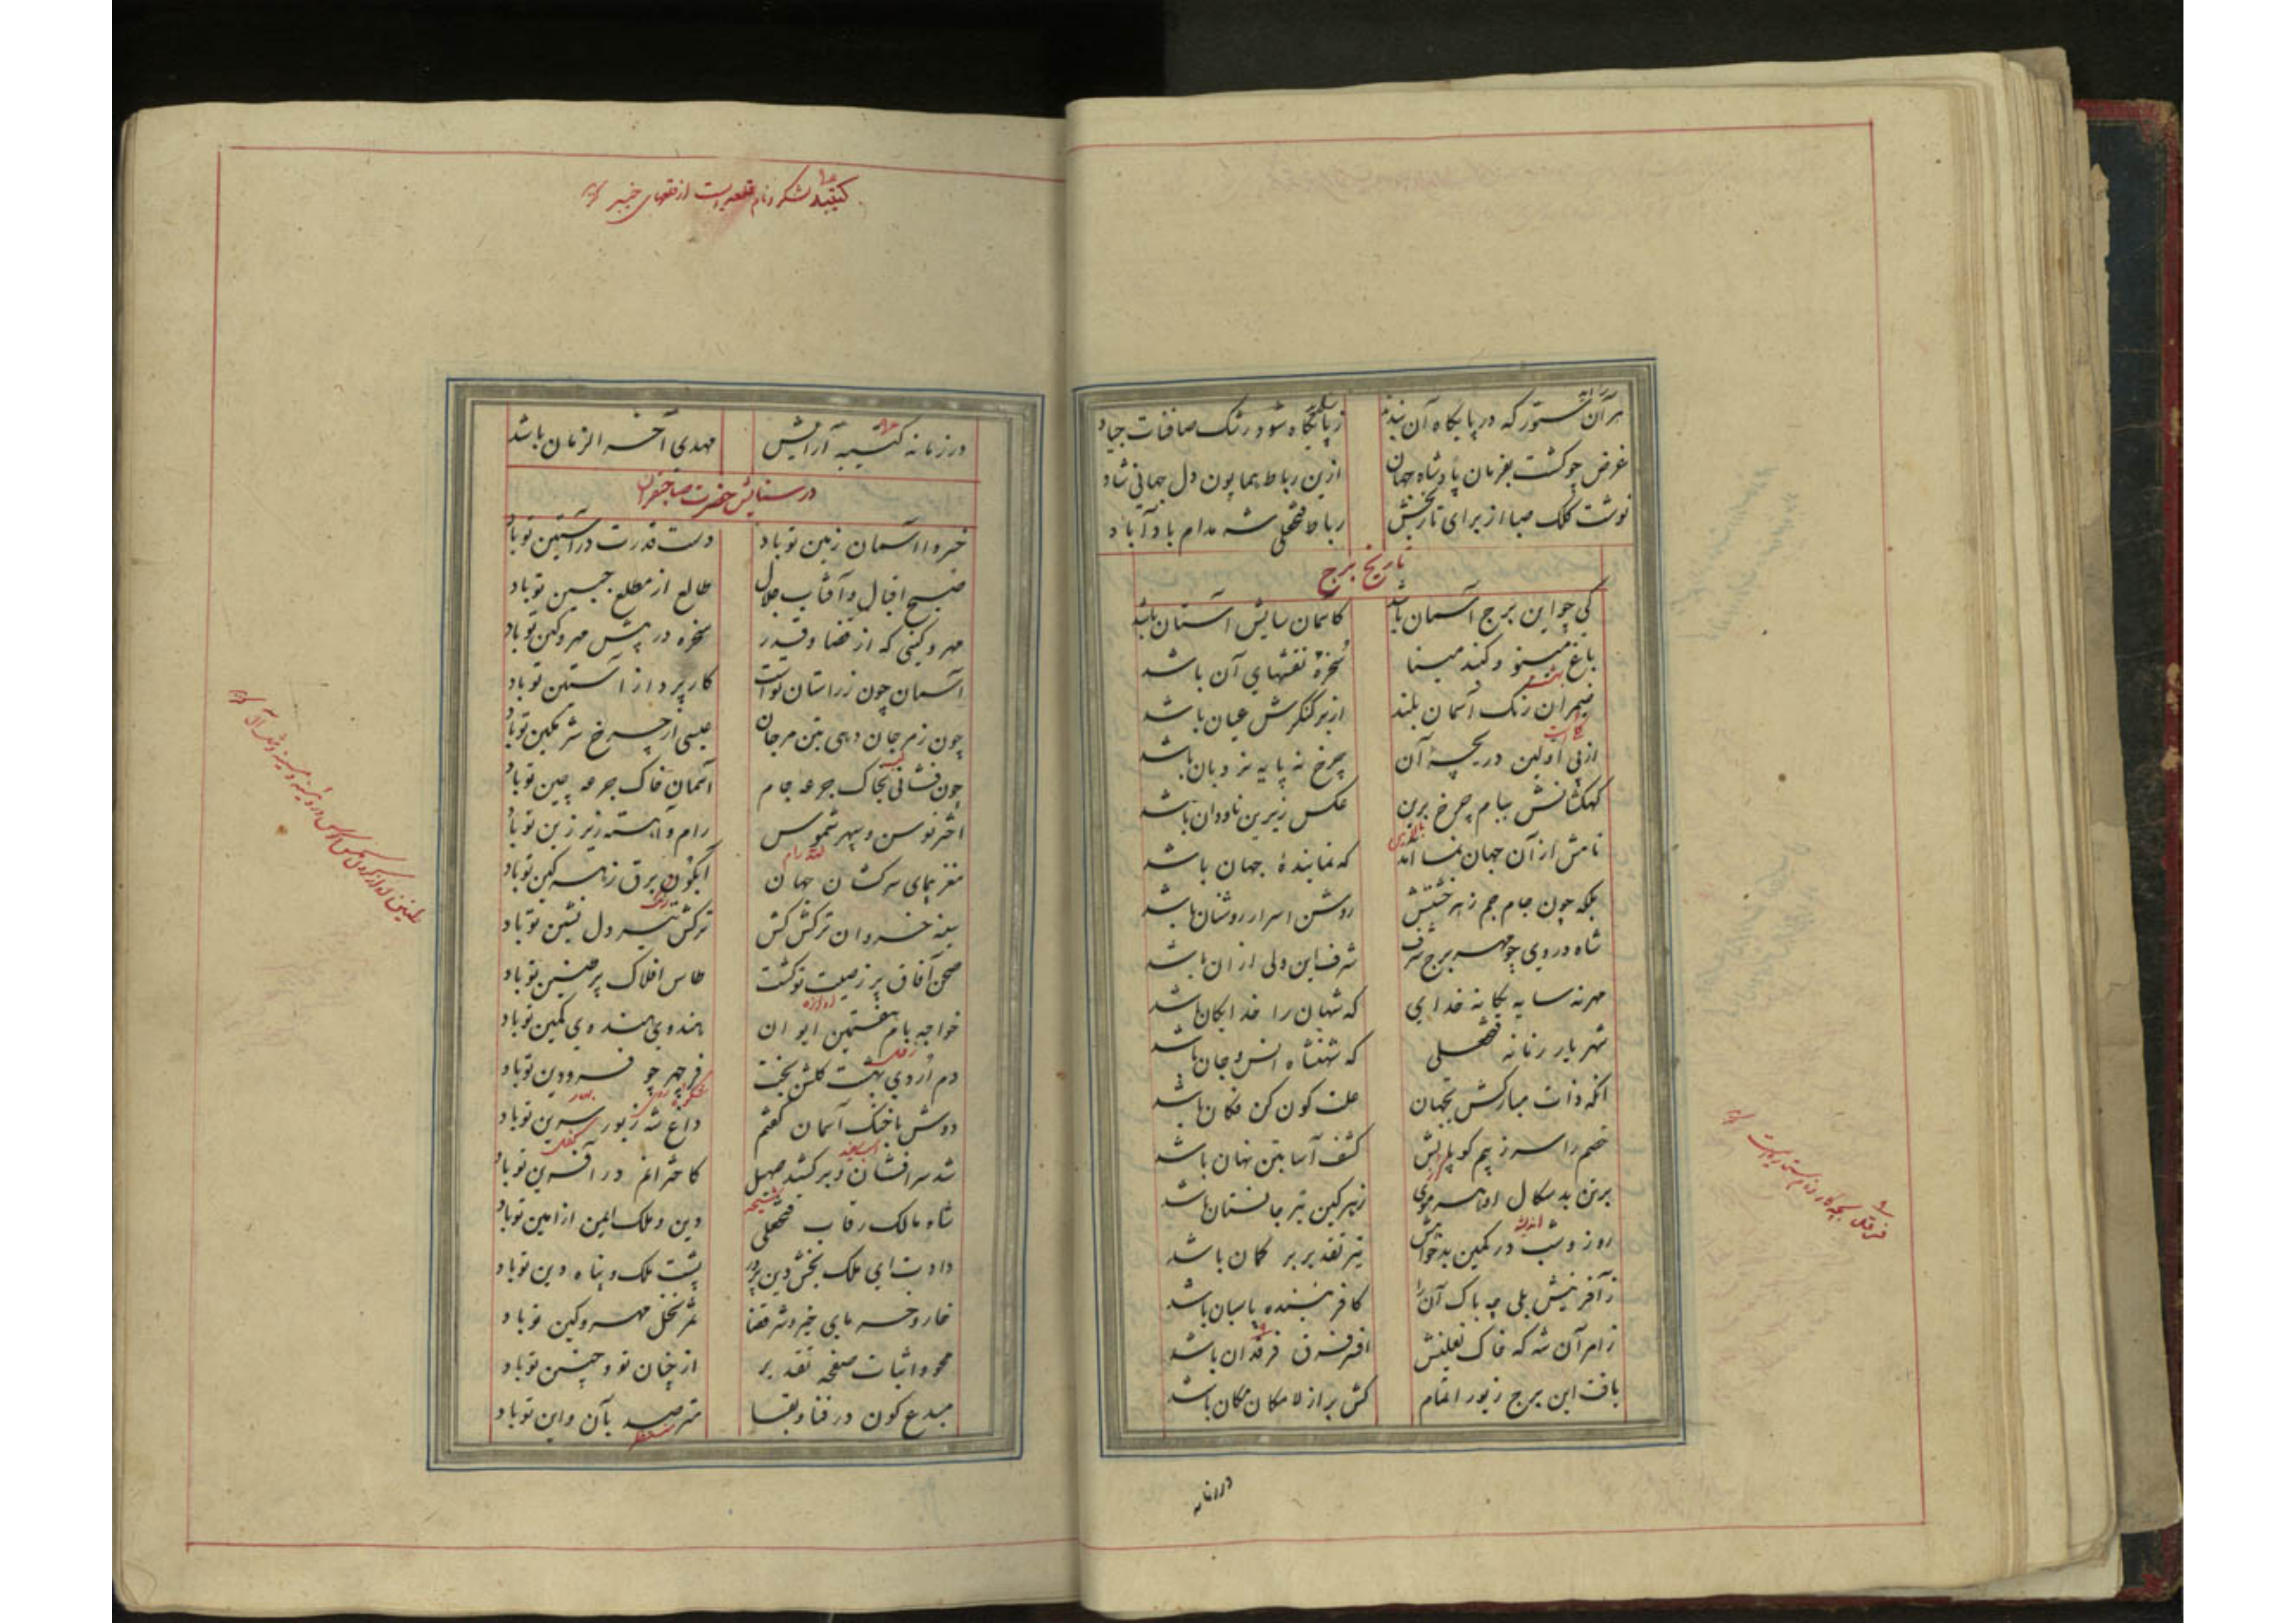 هر آن ستور که در پایگاه آن بندند
ز پایگاه شود رشک صافنات جیاد
غرض چو گشت بفرمان پادشاه جهان
ازین رباط همایون دل جهانی شاد
نوشت کلک صبا از برای تاریخش
رباط فتحعلی شه مدام باد آباد
تاریخ برج
کی چو این برج آسمان باشد
کاسمان سایش آستان باشد
باغ مینو و گنبد مینا
سخرهٔ نقشهای آن باشد
ضیمران رنگ آسمان بلند
از بر کنگرش عیان باشد
از پی اولین دریچهٔ آن
چرخ نه پایه نردبان باشد
کهکشانش ببام چرخ برین
عکس زیرین ناودان باشد
نامش از آن جهان نما آمد
که نمایندهٔ جهان باشد
بلکه چون جام جم ز هر خشتش
روشن اسرار روشنان باشد
شاه در وی چو مهر برج شرف
شرف این ولی از آن باشد
مهر نه سایه یگانه خدای
که شهان را خدایگان باشد
شهریار زمانه فتحعلی
که شهنشاه انس و جان باشد
آنکه ذات مبارکش بجهان
علت کون کن فکان باشد
خصم را سر ز بیم کوپالش
کشف آسا بتن نهان باشد
بر تن بدسگال او هر موی
زهرگین تیر جانستان باشد
روز و شب در کمین بدخواهش
تیر تقدیر بر کمان باشد
ز آفرینش بلی چه باک آن را
کافریننده پاسبان باشد
ز امر آن شه که خاک نعلینش
افسر فرق فرقدان باشد
یافت این برج زیور اتمام
کش بر از لامکان مکان باشد
در زمانه
کتیبه لشکر و نام قلعه ایست از قلعهای خیبر
در زمانه کتیبه آرایش
مهدی آخر الزمان باشد
در ستایش حضرت صاحبقران
خسروا آسمان زمین تو باد
دست قدرت در آستین تو باد
صبح اقبال و آفتاب جلال
طالع از مطلع جبین تو باد
مهر و کینی که از قضا و قدر
سخره در پیش مهر و کین تو باد
آسمان چون ز راستان تو است
کارپرداز آستین تو باد
چون ز مرجان دهی بتن مرجان
عیسی از چرخ شرمگین تو باد
چون فشانی بخاک جرعه جام
آسمان خاک جرعه چین تو باد
اختر توسن و سپهر شموس
رام و آهسته زیر زین تو باد
مغز پمای سرکشان جهان
آبگون برق زهرگین تو باد
سینه خسروان ترکش کش
ترکش تیر دل نشین تو باد
صحن آفاق پر ز صیت تو گشت
طاس افلاک پر طنین تو باد
خواجه بام هفتمین ایوان
هندوی هندوی کمین تو باد
دم اردی بهشت گلشن بخت
فر چهر چو فرودین تو باد
دوش با خنگ آسمان گفتم
داغ شه زیور سرین تو باد
شد سرافشان و برکشید صهیل
کاخترانم در آفرین تو باد
شاه مالک رقاب فتحعلی
دین و ملک ایمن از امین تو باد
دادت ای ملک بخش دین پرور
پشت ملک و پناه دین تو باد
خار و خرمای خیر و شر قضا
ثمر نخل مهر و کین تو باد
محو و اثبات صفحه تقدیر
از چنان تو و چنین تو باد
مبدع کون در فنا و بقا
مترصد بآن و این تو باد